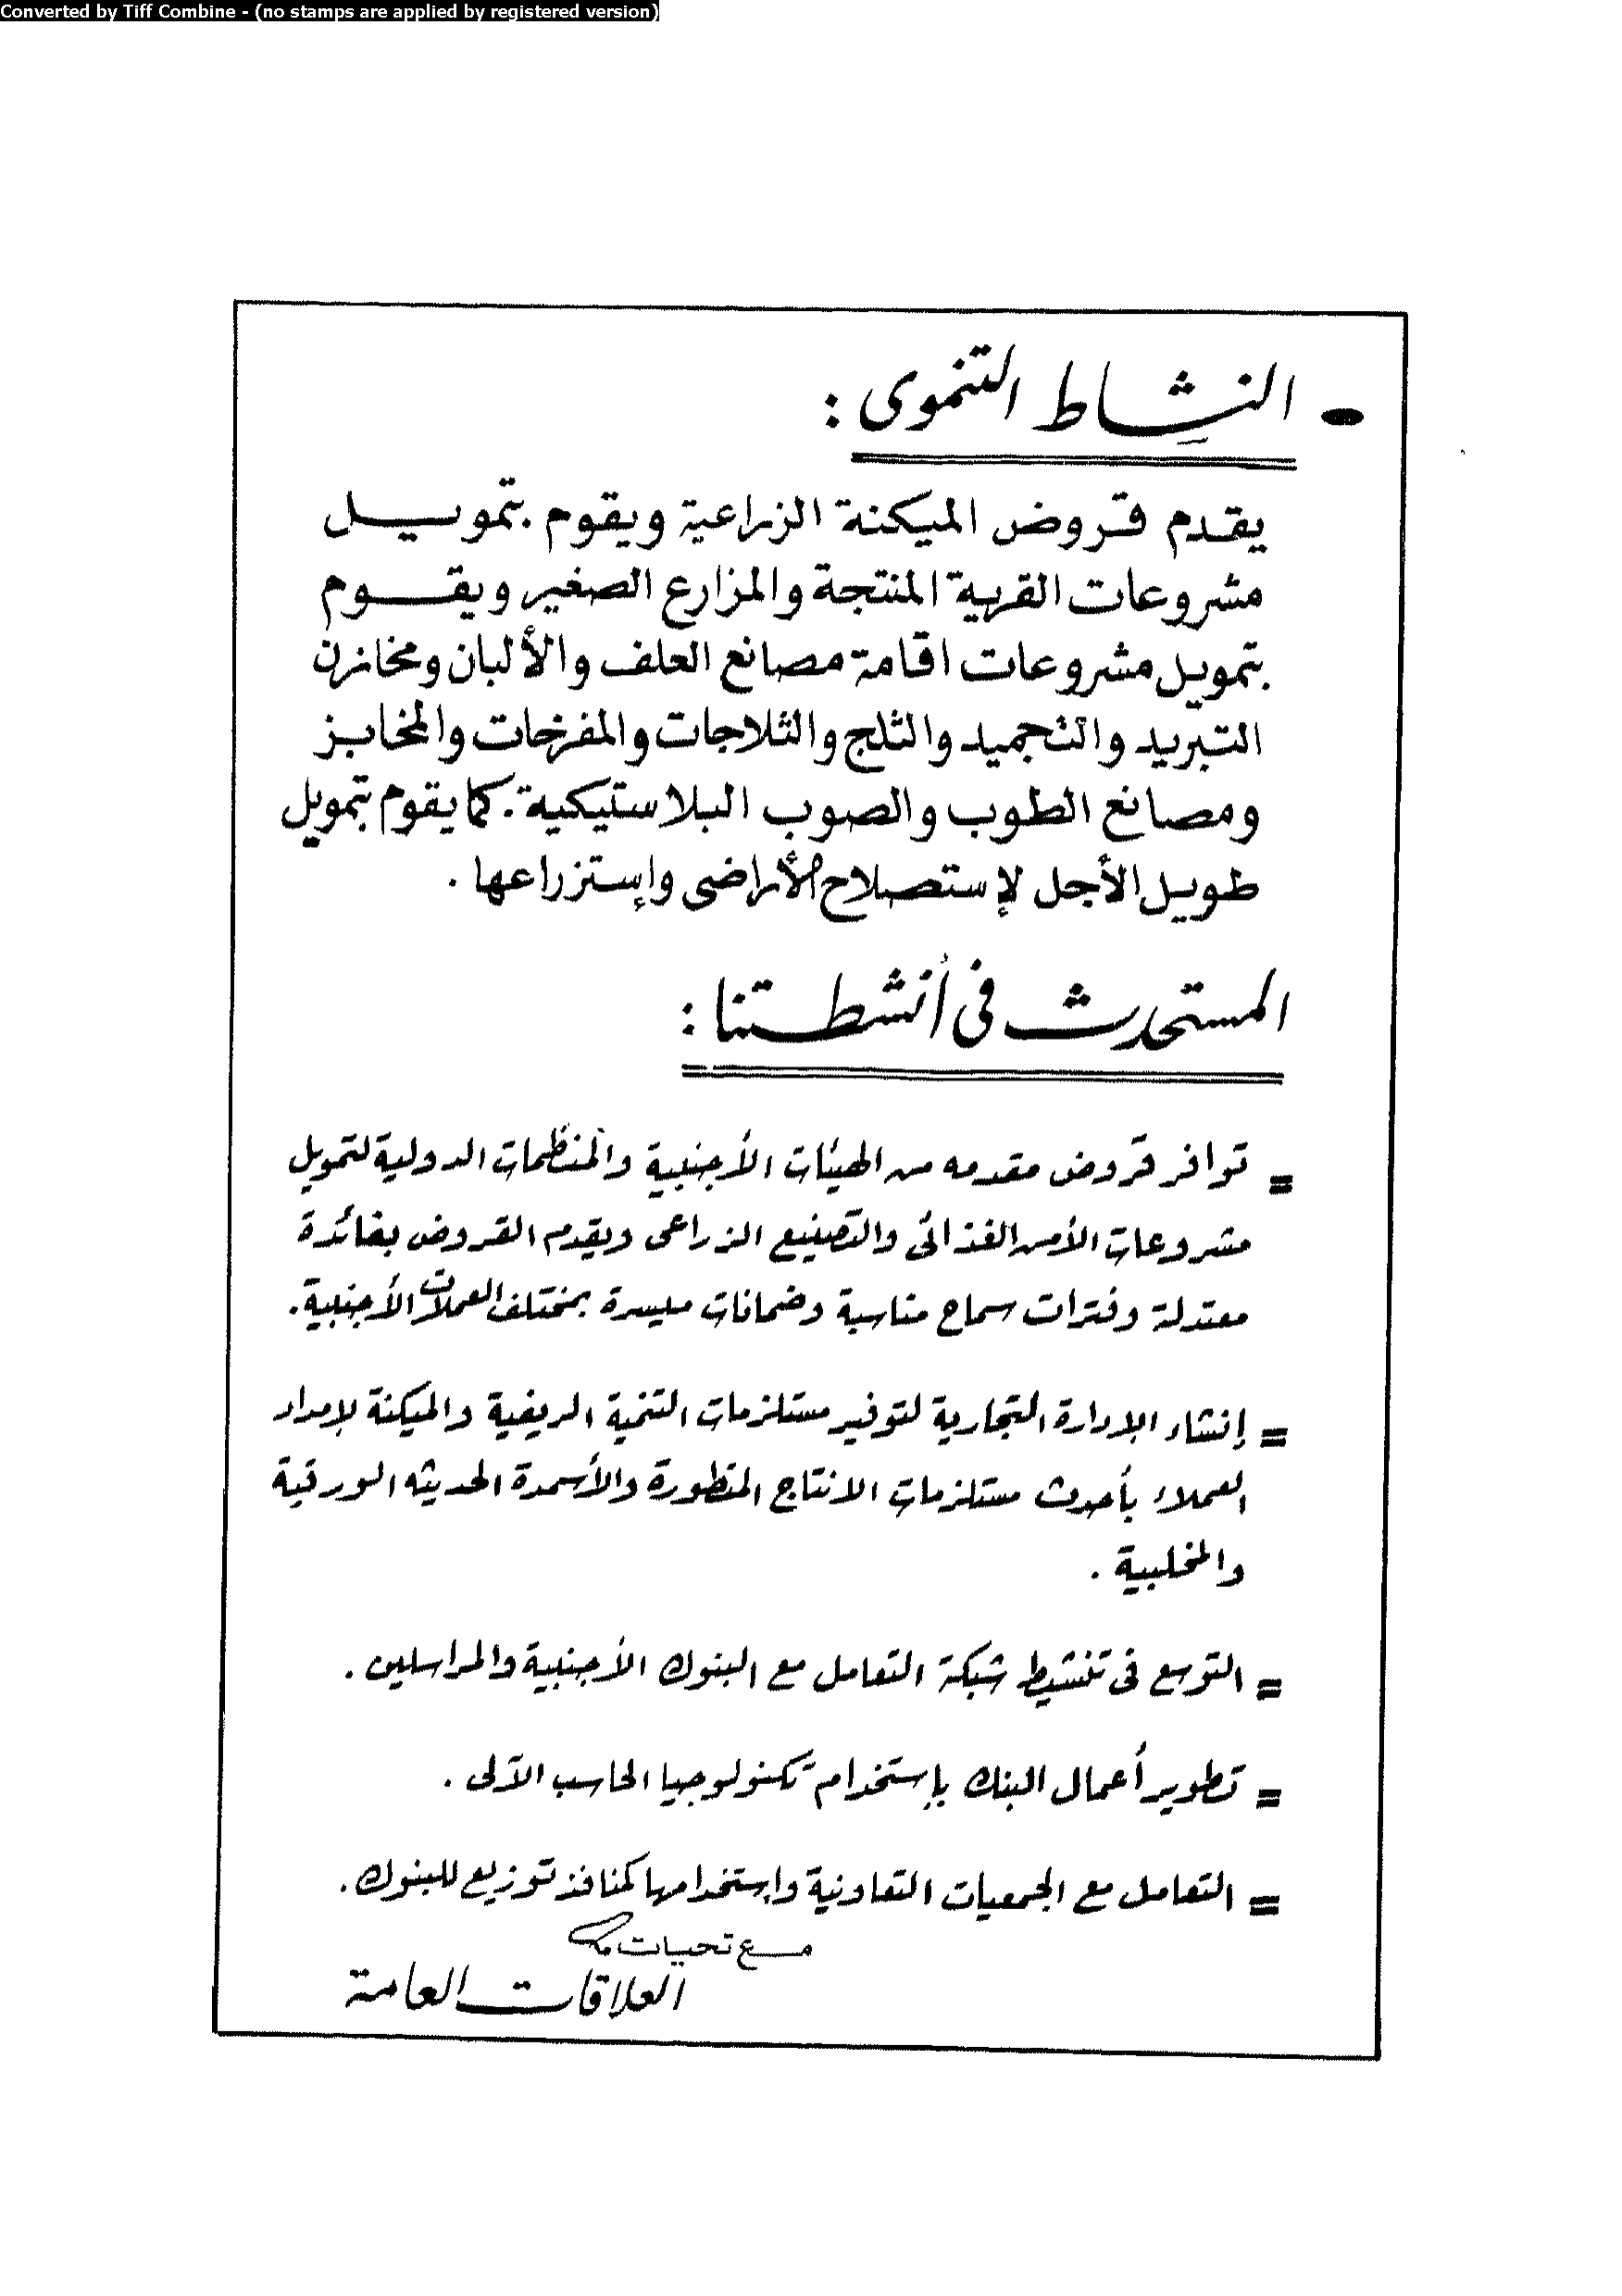 Converted by Tiff Combine - (no stamps are applied by registered version)
- النشاط التنموى :
يقدم قروض الميكنة الزراعية ويقوم بتمويل
مشروعات القرية المنتجة والمزارع الصغير ويقوم
بتمويل مشروعات اقامة مصانع العلف والألبان ومخازن
التبريد والتجميد والثلج والثلاجات والمفرخات والمخابز
ومصانع الطوب والصوب البلاستيكية . كما يقوم بتمويل
طويل الأجل لإستصلاح الأراضى وإستزراعها .
المستحدث فى أنشطتنا :
= توافر قروض مقدمه من الهيئات الأجنبية والمنظمات الدولية لتمويل
مشروعات الأمن الغذائى والتصنيع الزراعى ويقدم القروض بفائدة
معتدلة وفترات سماح مناسبة وضمانات ميسرة بمختلف العملات الأجنبية .
= إنشاء الإدارة التجارية لتوفير مستلزمات التنمية الريفية والميكنة لإمداد
العملاء بأحدث مستلزمات الانتاج المتطورة والأسمدة الحديثه الورقية
والمخلبية .
= التوسع فى تنشيط شبكة التعامل مع البنوك الأجنبية والمراسلين .
= تطوير أعمال البنك بإستخدام تكنولوجيا الحاسب الآلى .
= التعامل مع الجمعيات التعاونية وإستخدامها كمنافذ توزيع للبنوك .
مع تحيات
العلاقات العامة